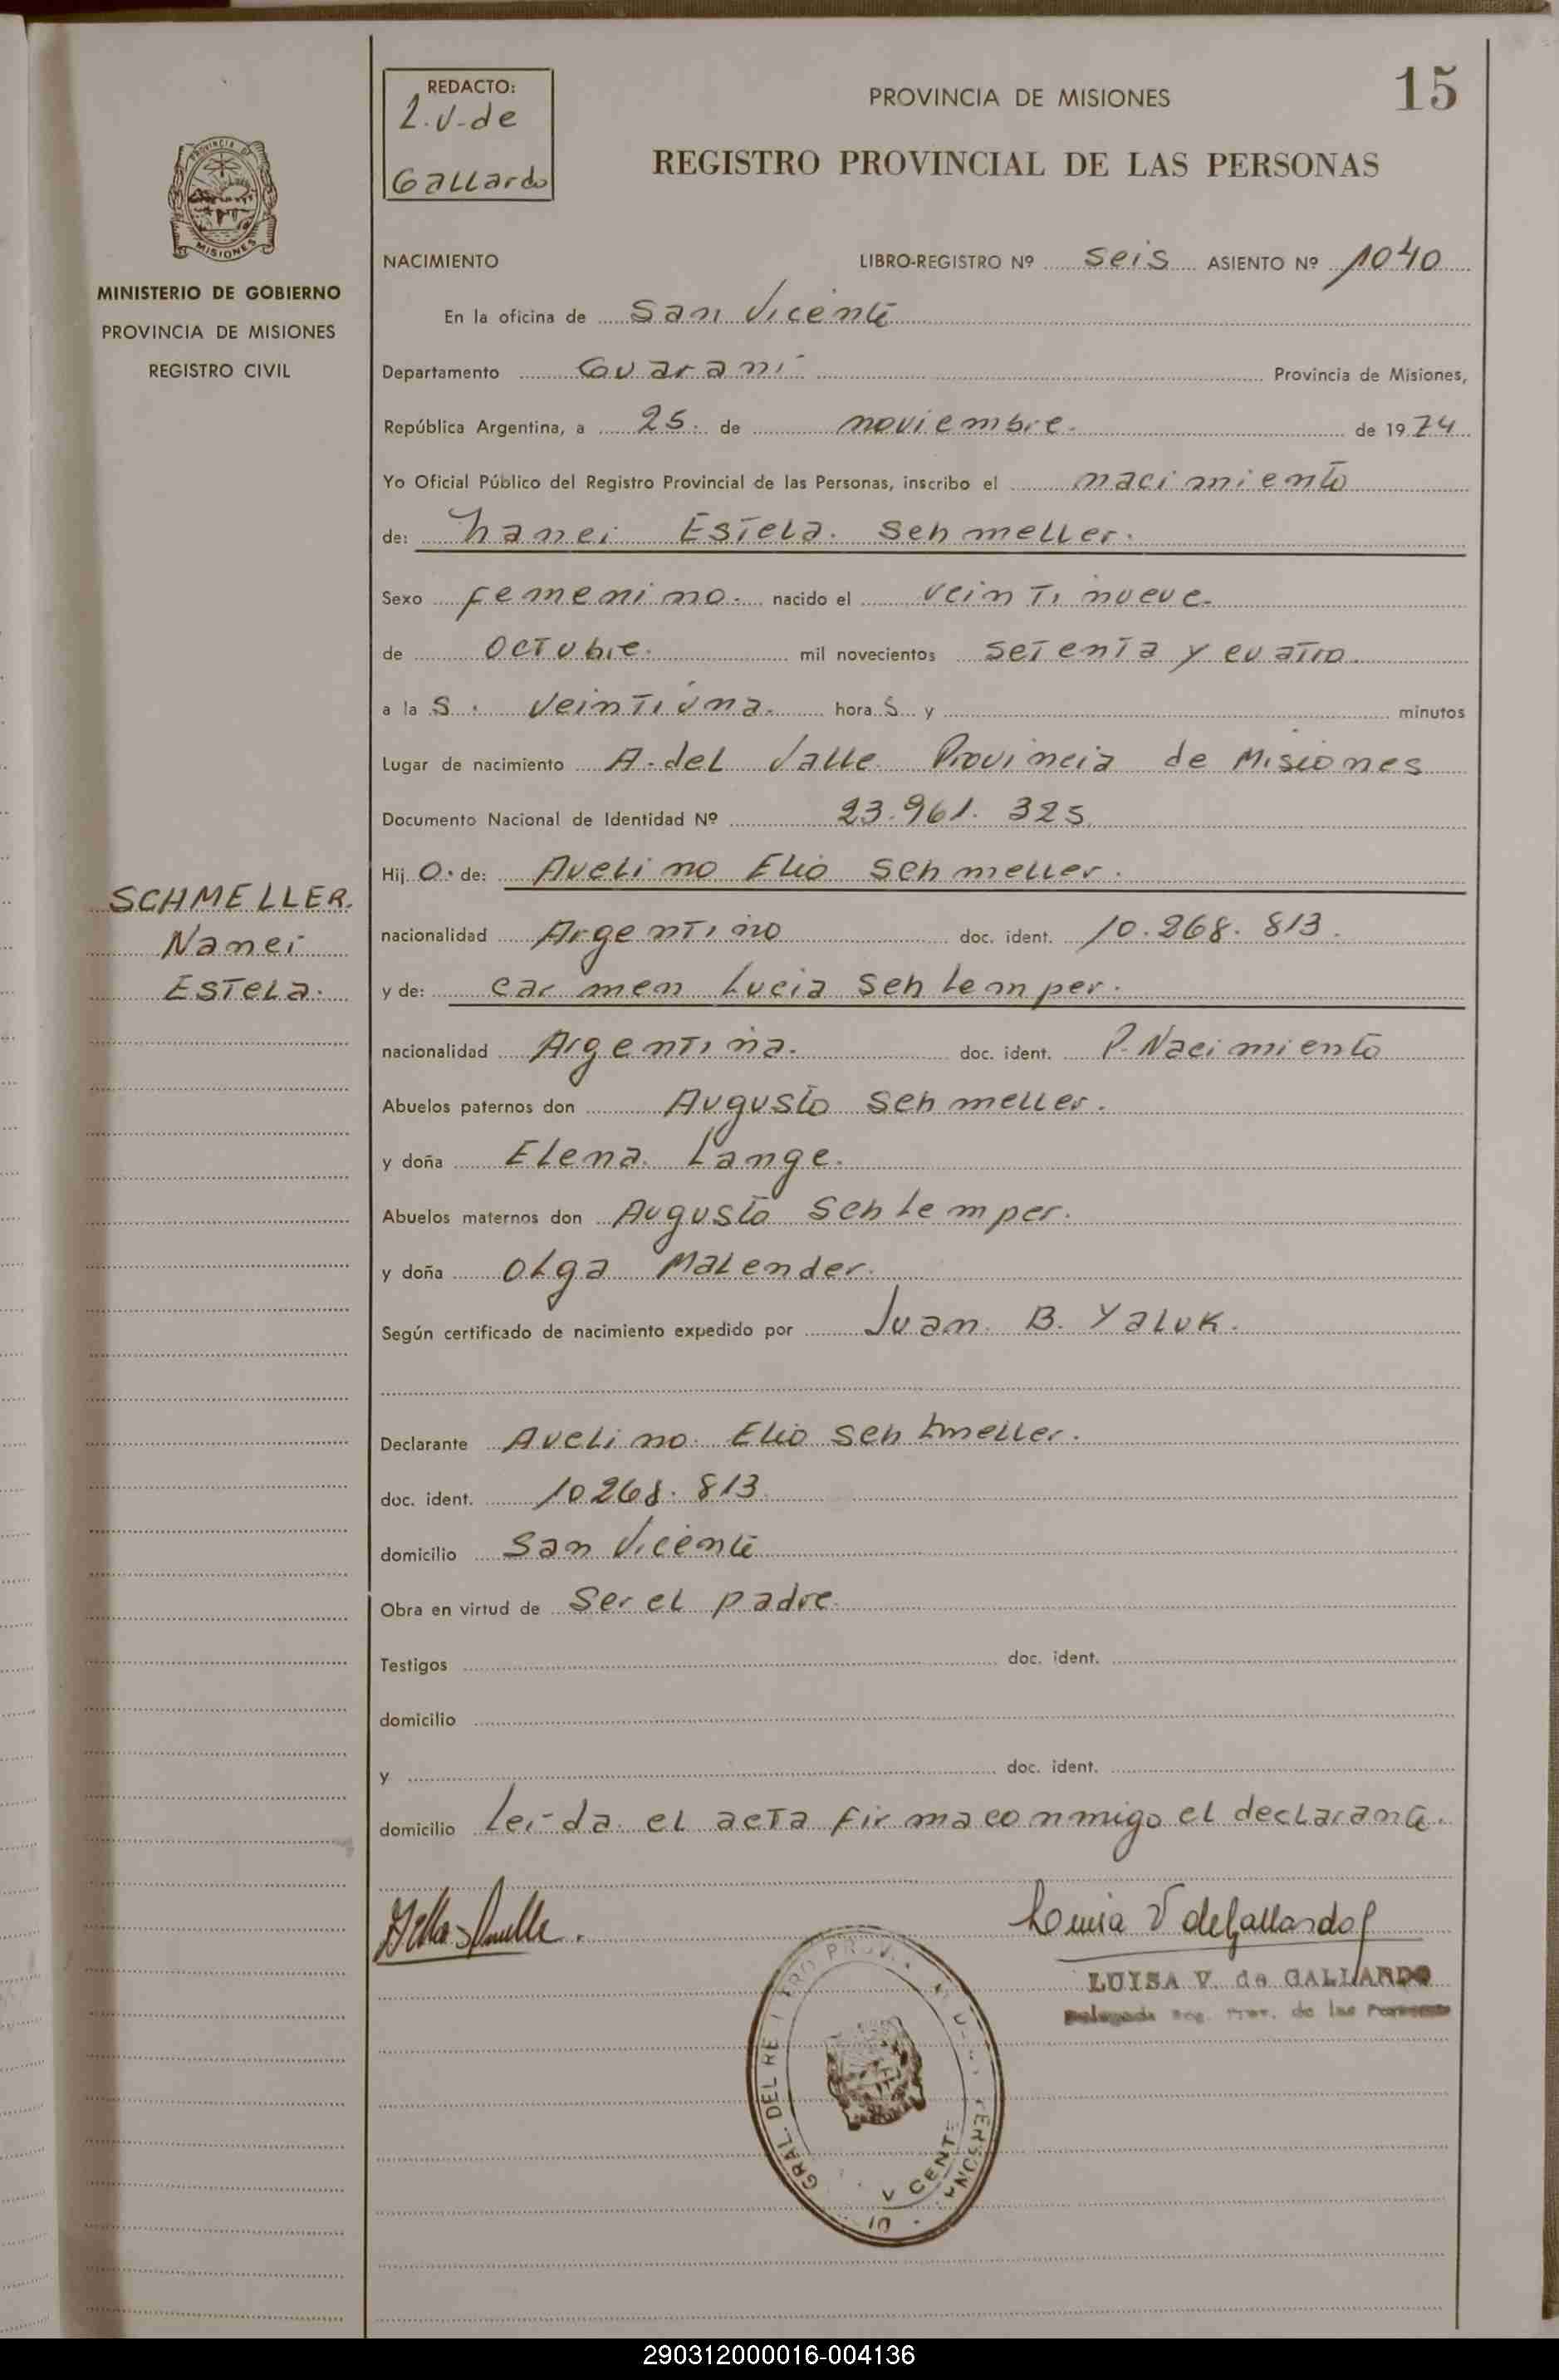 REDACTO:
L.V. de
Gallardo
PROVINCIA DE MISIONES
15
REGISTRO PROVINCIAL DE LAS PERSONAS
MISIONES
MINISTERIO DE GOBIERNO
PROVINCIA DE MISIONES
REGISTRO CIVIL
NACIMIENTO LIBRO-REGISTRO Nº seis ASIENTO Nº 1040
En la oficina de San Vicente
Departamento Guaraní Provincia de Misiones,
República Argentina, a 25. de noviembre. de 1974
Yo Oficial Público del Registro Provincial de las Personas, inscribo el nacimiento
de: Nanci Estela. Schmeller.
Sexo femenino. nacido el veintinueve.
de Octubre. mil novecientos setenta y cuatro.
a la s. veintiuna. hora s y minutos
Lugar de nacimiento A. del Valle Provincia de Misiones
Documento Nacional de Identidad Nº 23.961.325
Hij o. de: Avelino Elio Schmeller.
nacionalidad Argentino doc. ident. 10.268.813.
y de: Carmen Lucia Schlemper.
nacionalidad Argentina. doc. ident. P. Nacimiento
Abuelos paternos don Augusto Schmeller.
y doña Elena. Lange.
Abuelos maternos don Augusto Schlemper.
y doña Olga Malender.
Según certificado de nacimiento expedido por Juan. B. Yaluk.
Declarante Avelino Elio Schmeller.
doc. ident. 10268.813
domicilio San Vicente
Obra en virtud de Ser el padre.
Testigos doc. ident.
domicilio
y doc. ident.
domicilio Leída el acta firma conmigo el declarante.
SCHMELLER.
Nanci
Estela.
Louisa V de Gallardo
LUISA V. de GALLARDO
Delegada Reg. Prov. de las Personas
GRAL. DEL RE
PROV.
V CENTE
290312000016-004136